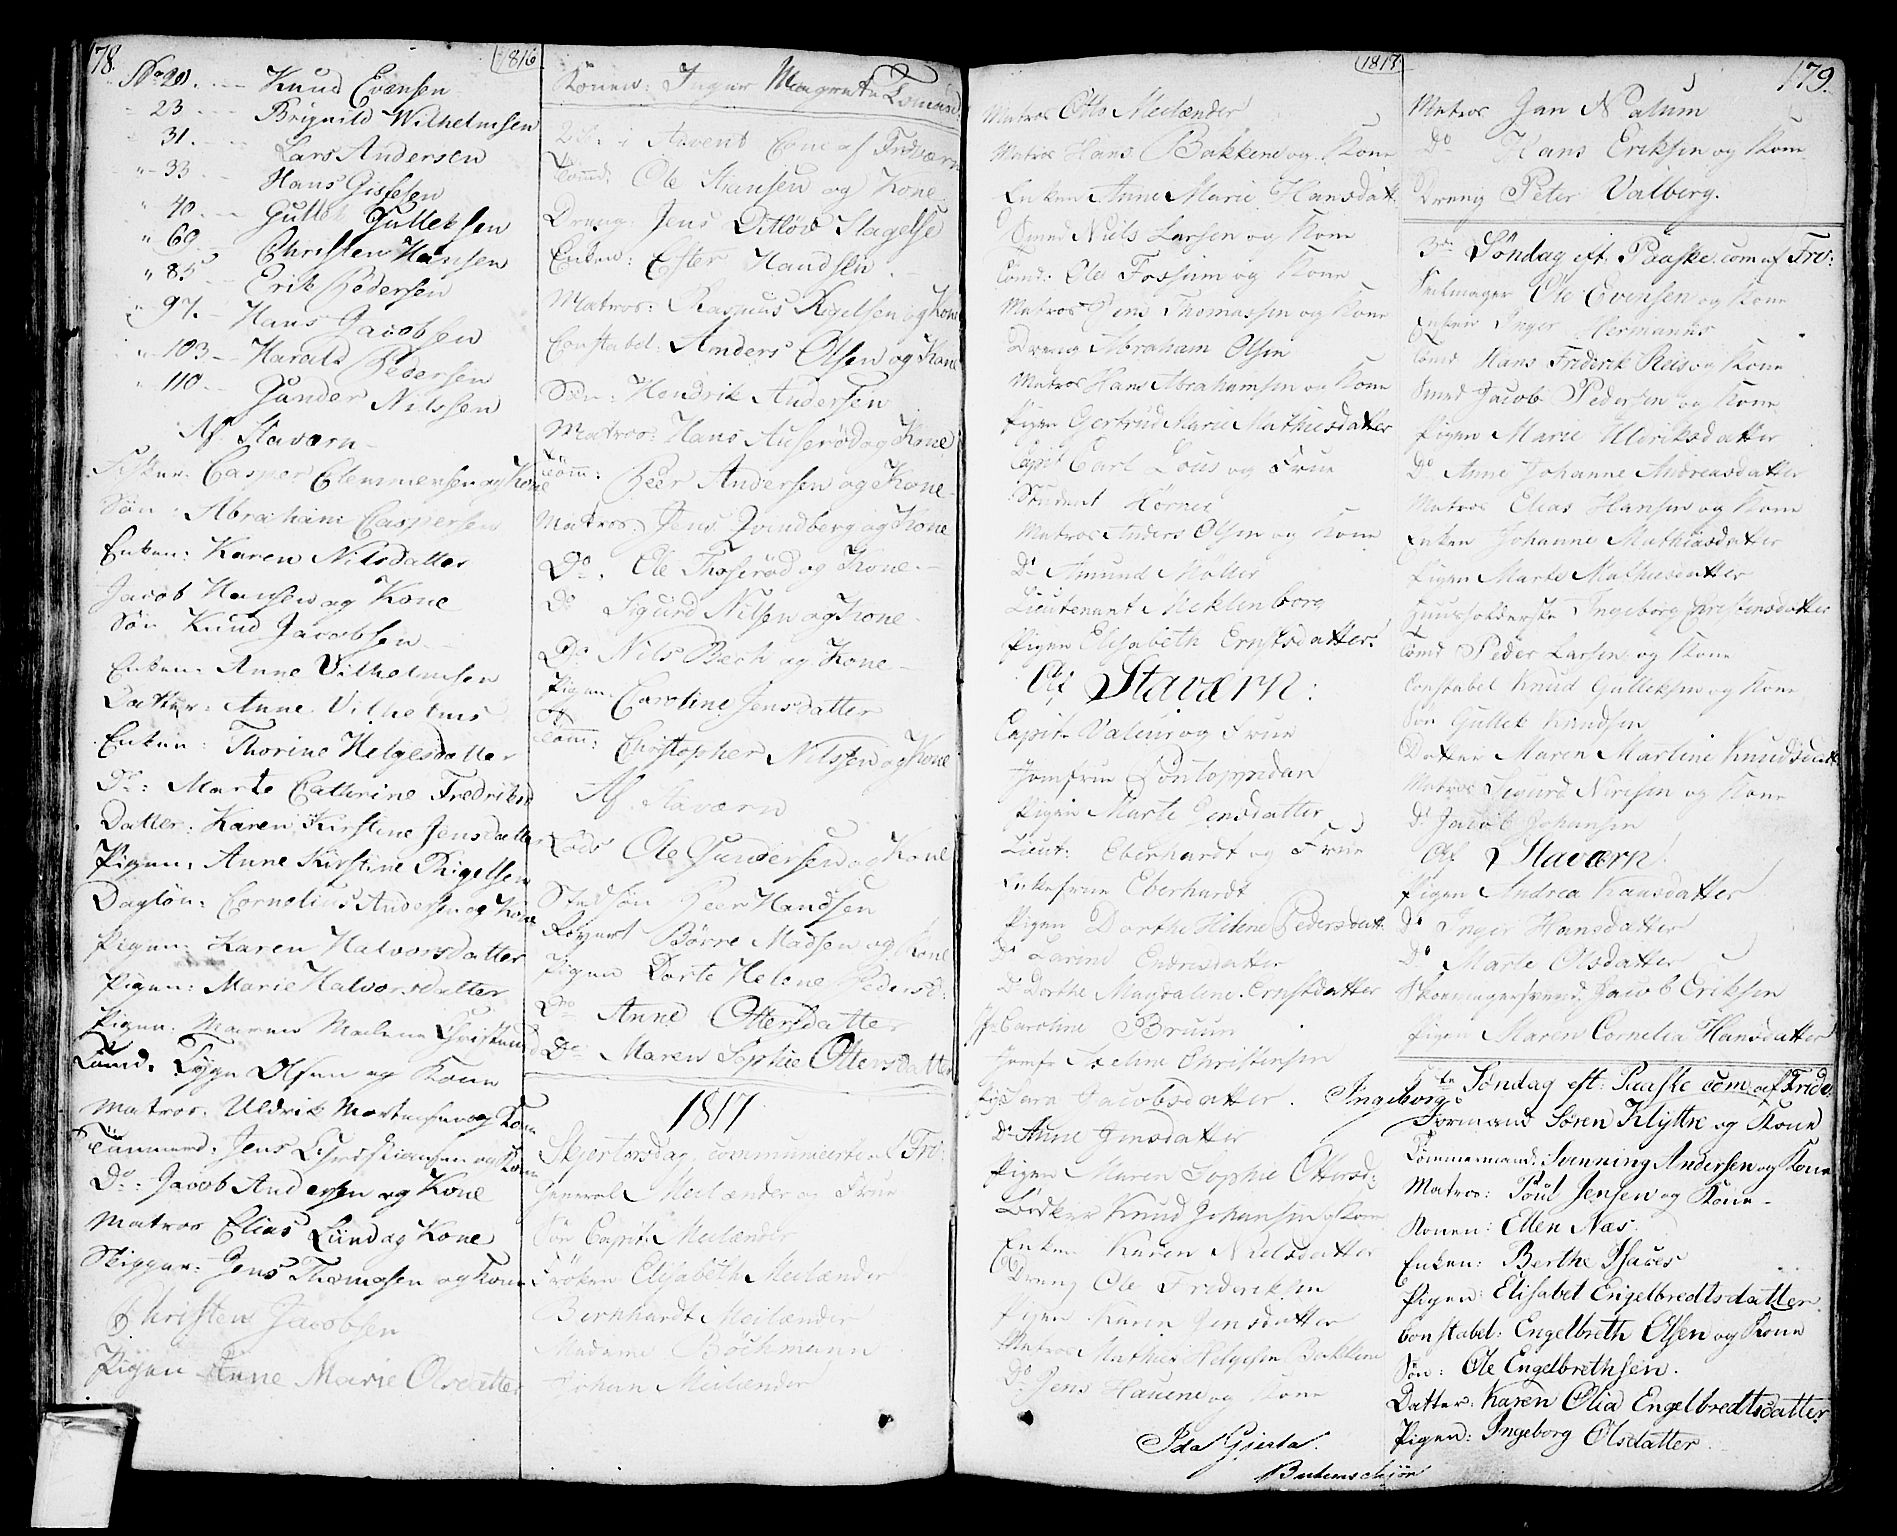 178.
1816
No 20. -- Knud Evensen
- 23 -- Brignild Wilhelmsen
- 31. -- Lars Andersen
"- 33 -- Hans Gissesen
" 40. -- Gullek Gulleksen
" 69 -- Christen Hansen
" 85 -- Erik Pedersen
" 97. - Hans Jacobsen
"- 103 - Harald Pedersen
" 110 -- Gunder Nilssen
Af Staværn
Fisker: Casper Clemmensen og Kone
Søn: Abraham Caspersen
Enken: Karen Nilsdatter
Jacob Hansen og Kone
Søn Knud Jacobsen
Enken: Anne Vilhelmsen
Datter: Anne Vilhelms
Enken: Thorine Helgesdatter
Do: Marte Cathrine Fredriks
Datter: Karen Kirstine Jensdatter
Pigen: Anne Kirstine Rigelsen
Dagløn: Cornelius Andersen og Kone
Pigen: Karen Halvorsdatter
Pigen: Marie Halvorsdatter
Pigen: Maren Malene
Tømd. Tyge Olsen og Kone
Matros: Uldrik Mortensen og Kone
Tømmerd: Jens Christiansen og Kone
Do: Jacob Andersen og Kone
Matros Elias Lund og Kone
Skipper: Jens Thomesen og Kone
Christen Jacobsen
Pigen Anne Marie Olsdatter
Konen: Inger Magrete
2de i Advent Come af Fredværn
Tømd: Ole Stransen og Kone
Dreng: Jens Ditløv Slagelse
Enken: Ester Handsen
Matros: Rasmus Rigelsen og Kone
Constabel: Anders Olsen og Kone
Søn: Hendrik Andersen
Matros: Hans Auserød og Kone
Tømm: Peer Andersen og Kone
Matros: Jens Qvindberg og Kone
Do. Ole Thoserød og Kone
Do Sigurd Nilsen og Kone
Do Nils Bech og Kone
Pigen Caroline Jensdatter
Tøm: Christopher Nilssen og Kone
Af Staværn
Lods Ole Gundersen og Kone
Stedsøn Peer Handsen
Børre Madsen og Kone
Pigen Dorte Helene Pedersd:
Do Anne Ottersdatter
Do Maren Sophie Ottersdatter
1817
Skjertorsdag communicerte af Fre:
General Meilænder og Frue
Søn Capit. Meilænder
Frøken Elisabeth Meilænder
Bernhardt Meilænder
Madame Bøchmann
Johan Meilænder
1817
Matros Otto Meilænder
Matros Hans Bakkene og Kone
Enken Anne Marie Hansdatt.
Smed Niels Larsen og Kone
Tømd: Ole Fossum og Kone
Matros Jens Thomassen og Kone
Dreng Abraham Olsen
Matros Hans Abrahamsen og Kone
Pigen Gertrud Marie Mathiesdatter
Capit Carl Lous og Frue
Student Hørner
Matros Anders Olsen og Kone
Do Amund Møller
Lieutenant Meklenborg
Pigen Elisabeth Ernstsdatter
Af Staværn:
Capit. Valeur og Frue
Jomfrue
Pigen Marte Jensdatter
Lieut. Eberhardt og Frue
Enkefrue Eberhardt
Pigen Dorthe Helene Pedersdatt.
Do Larine Endresdatter
Do Dorthe Magdaline Ernstdatter
Caroline Bruun
Jomfr Christensen
Pig Sara Jacobsdatter.
Ingeborg
Do Anne Jensdatter
Pigen Maren Sophie Ottersd:
Bødker Knud Johansen og Kone
Enken Karen Nielsdatter
Dreng Ole Frederiksen
Pigen Karen Jensdatter
Matros Mathies Helgesen Bakkene
Do Jens Hauene og Kone
Ida Gierta.
179.
Matros Jan Nalum
Do Hans Eriksen og Kone
Dreng Peter Valberg.
3de Søndag eft. Paaske. com af Fre:
Seilmager Ole Evensen og Kone
Enken Inger Hermanns
Tømd Hans Fridrik Reis og Kone
Smed Jacob Pedersen og Kone
Pigen Marie Ulriksdatter
Do Anne Johanne Andreasdatter
Matros Elias Hansen og Kone
Enken Johanne Mathiasdatter
Pigen Marte Mathiesdatter
Huusholderske Ingeborg Christensdatter
Tømd Peder Larsen og Kone
Constabel Knud Gulleksen og Kone
Søn Gullek Knudsen
Datter Maren Martine Knudsdatt
Matros Sigurd Nielsen og Kone
Do Jacob Johansen
Af Staværn
Pigen Andrea Hansdatter
Do Inger Hansdatter
Do Marte Olsdatter
Skomagersvend Jacob Eriksen
Pigen Maren Cornelia Hansdatter
5te Søndag eft: Paaske com: af Frid:
Formand Søren Klyttre og Kone
Tømmermand: Svenning Andersen og Kone
Matros: Poul Jensen og Kone
Konen: Ellen Nas.
Enken: Berthe Isaces
Pigen: Elisabet Engelbredtsdatter
Constabel: Engelbreth Olsen og Kone
Søn: Ole Engelbrethsen.
Datter: Karen Olia Engelbredtsdatter
Pigen: Ingeborg Olsdatter